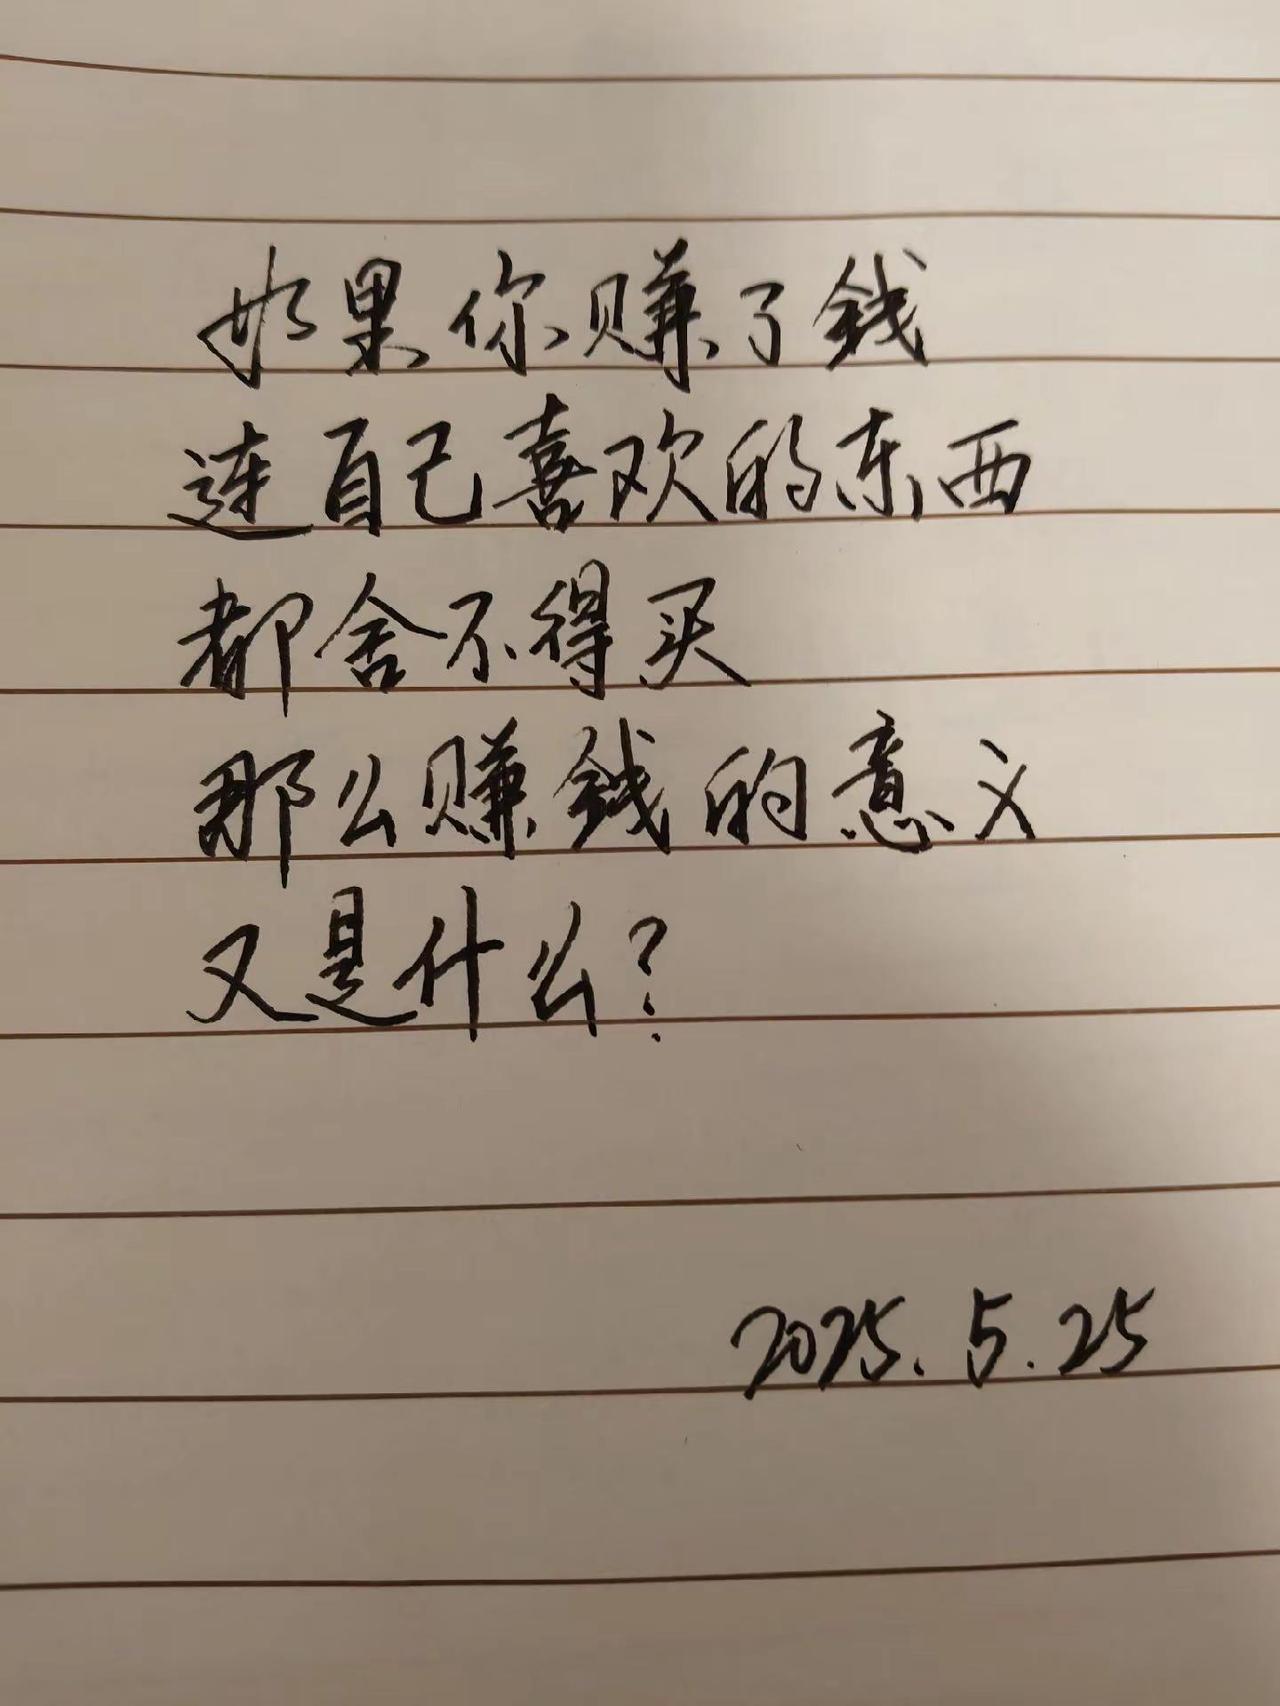 如果你赚了钱
连自己喜欢的东西
都舍不得买
那么赚钱的意义
又是什么?
2025.5.25